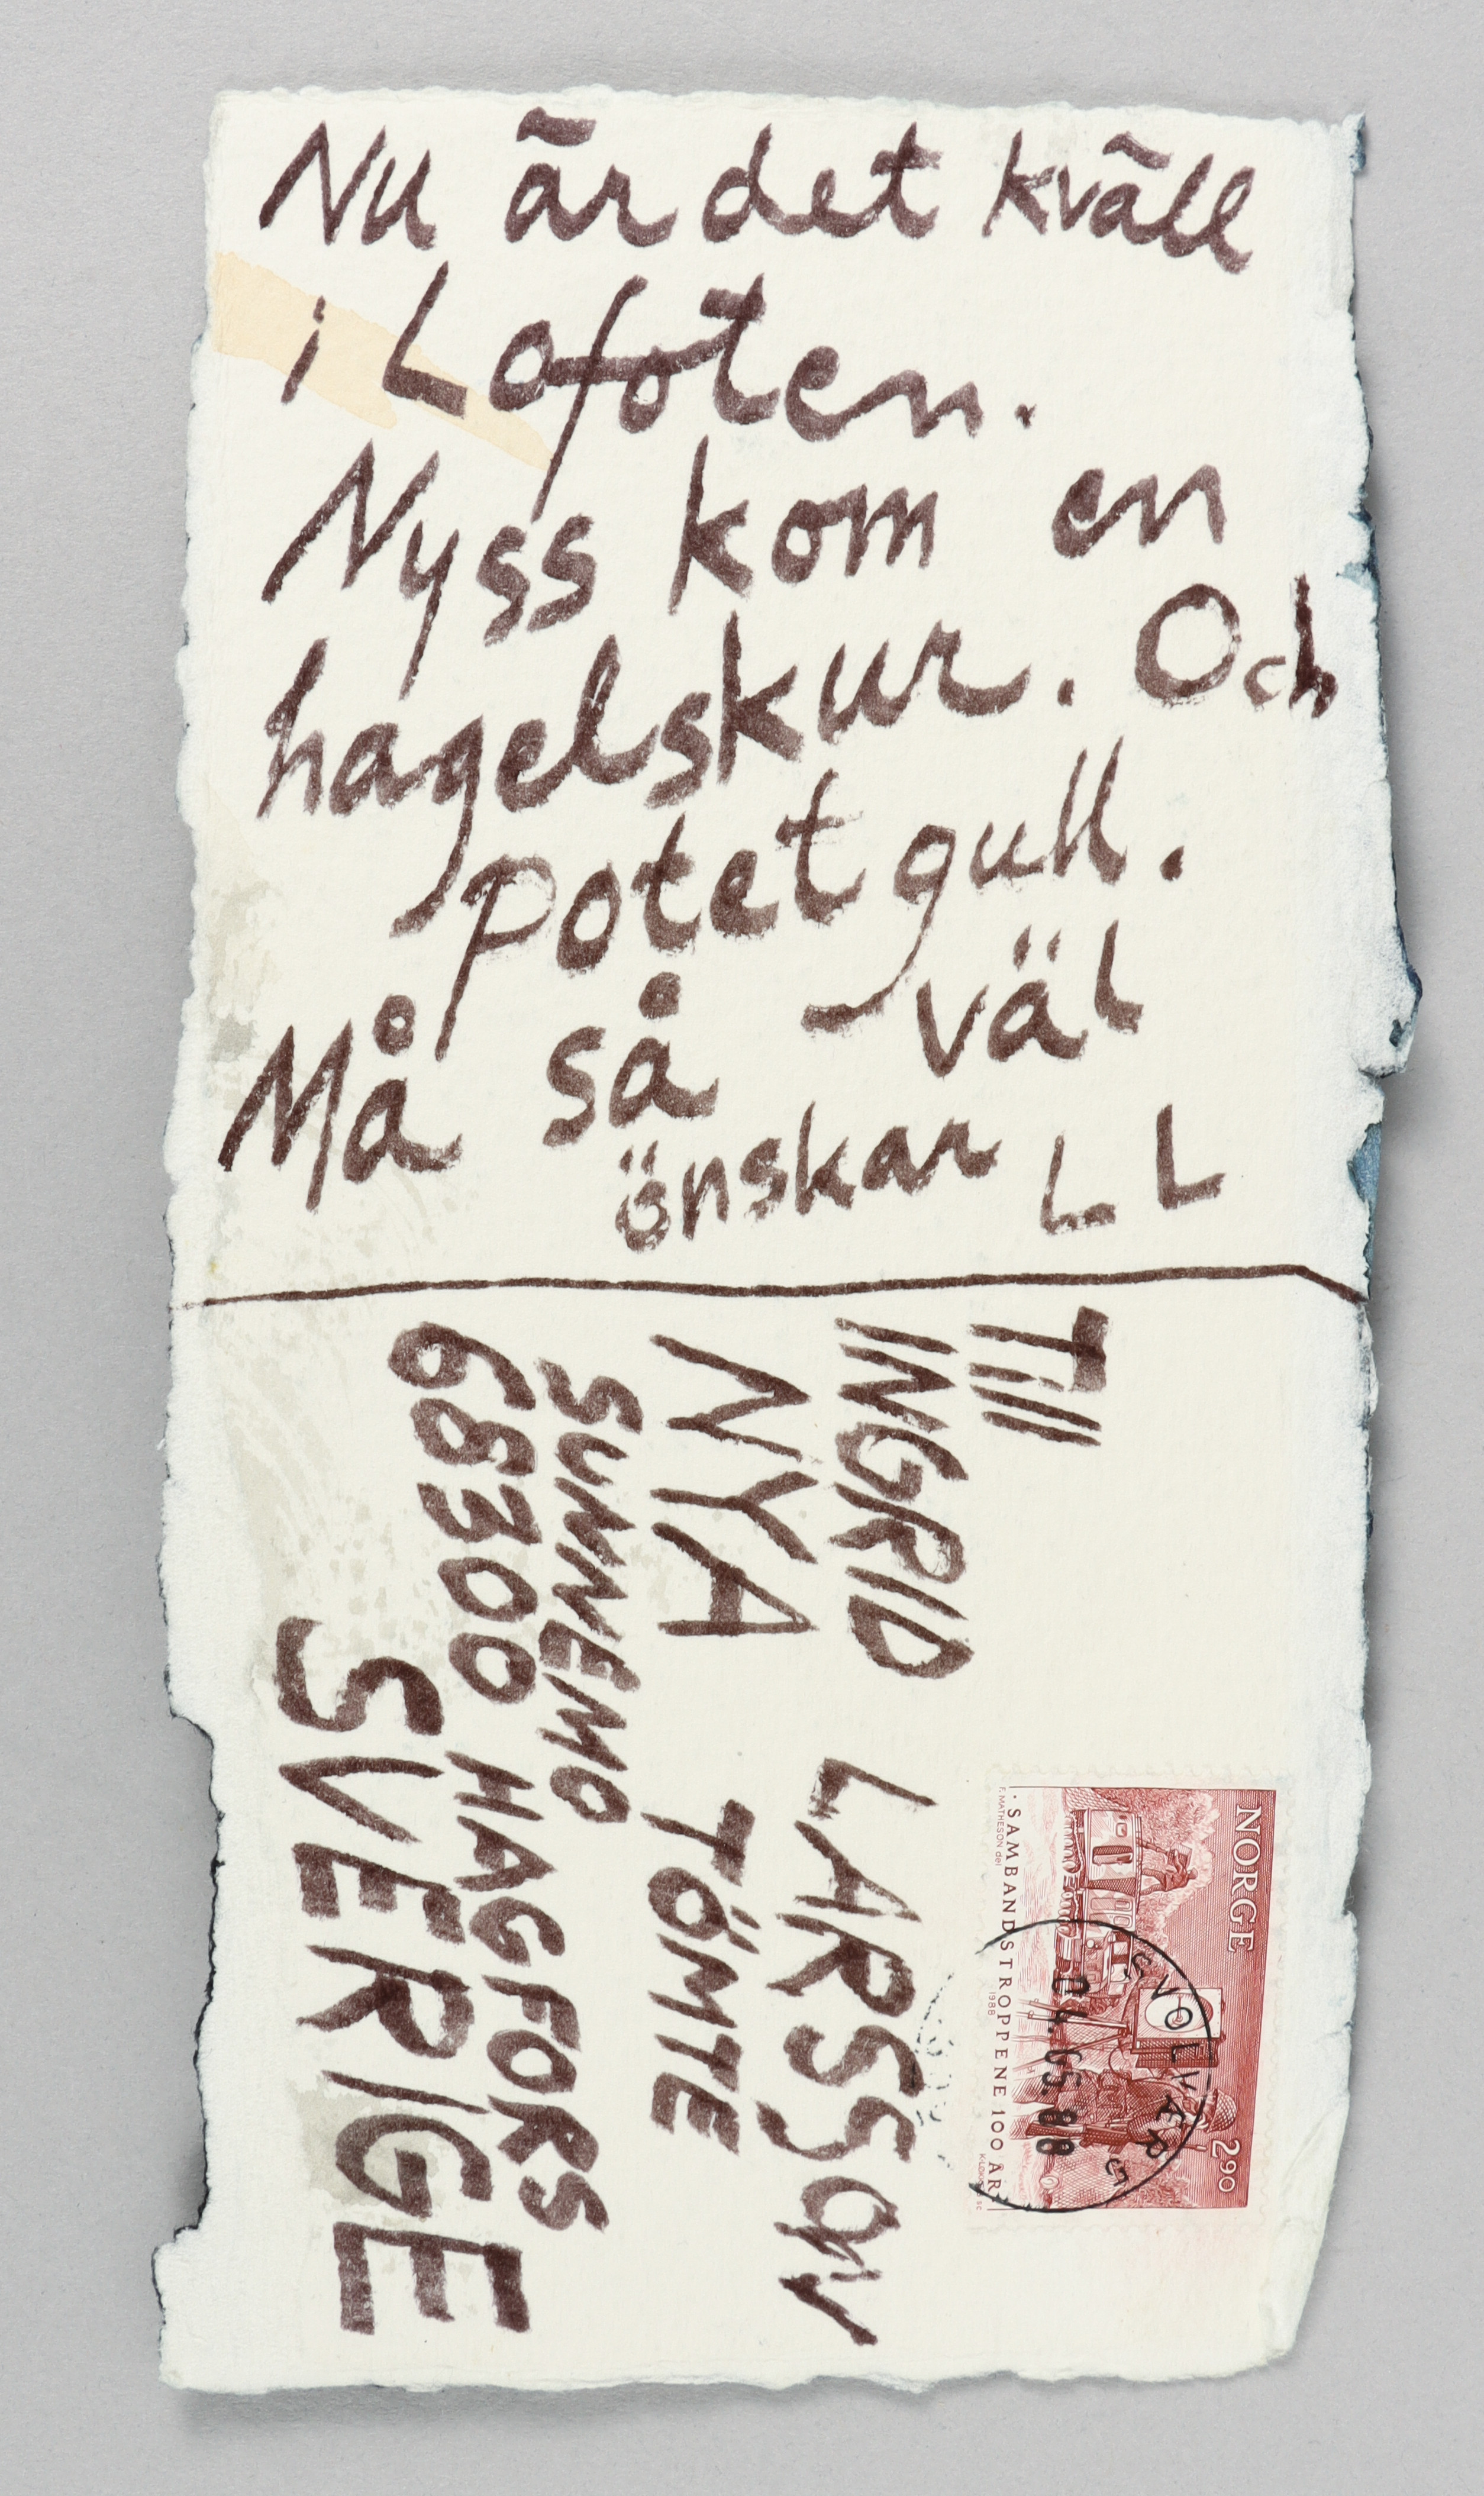 Nu är det kväll
i Lofoten.
Nyss kom en
hagelskur. Och
potetgull.
Må så väl
önskar L L
Till
INGRID LARSSON
NYA TÖMTE
SUNNEMO
68300 HAGFORS
SVERIGE
NORGE
2⁹⁰
SAMBANDSTROPPENE 100 ÅR
1988
F. MATHESON del
SVOLVÆR
04.05.88